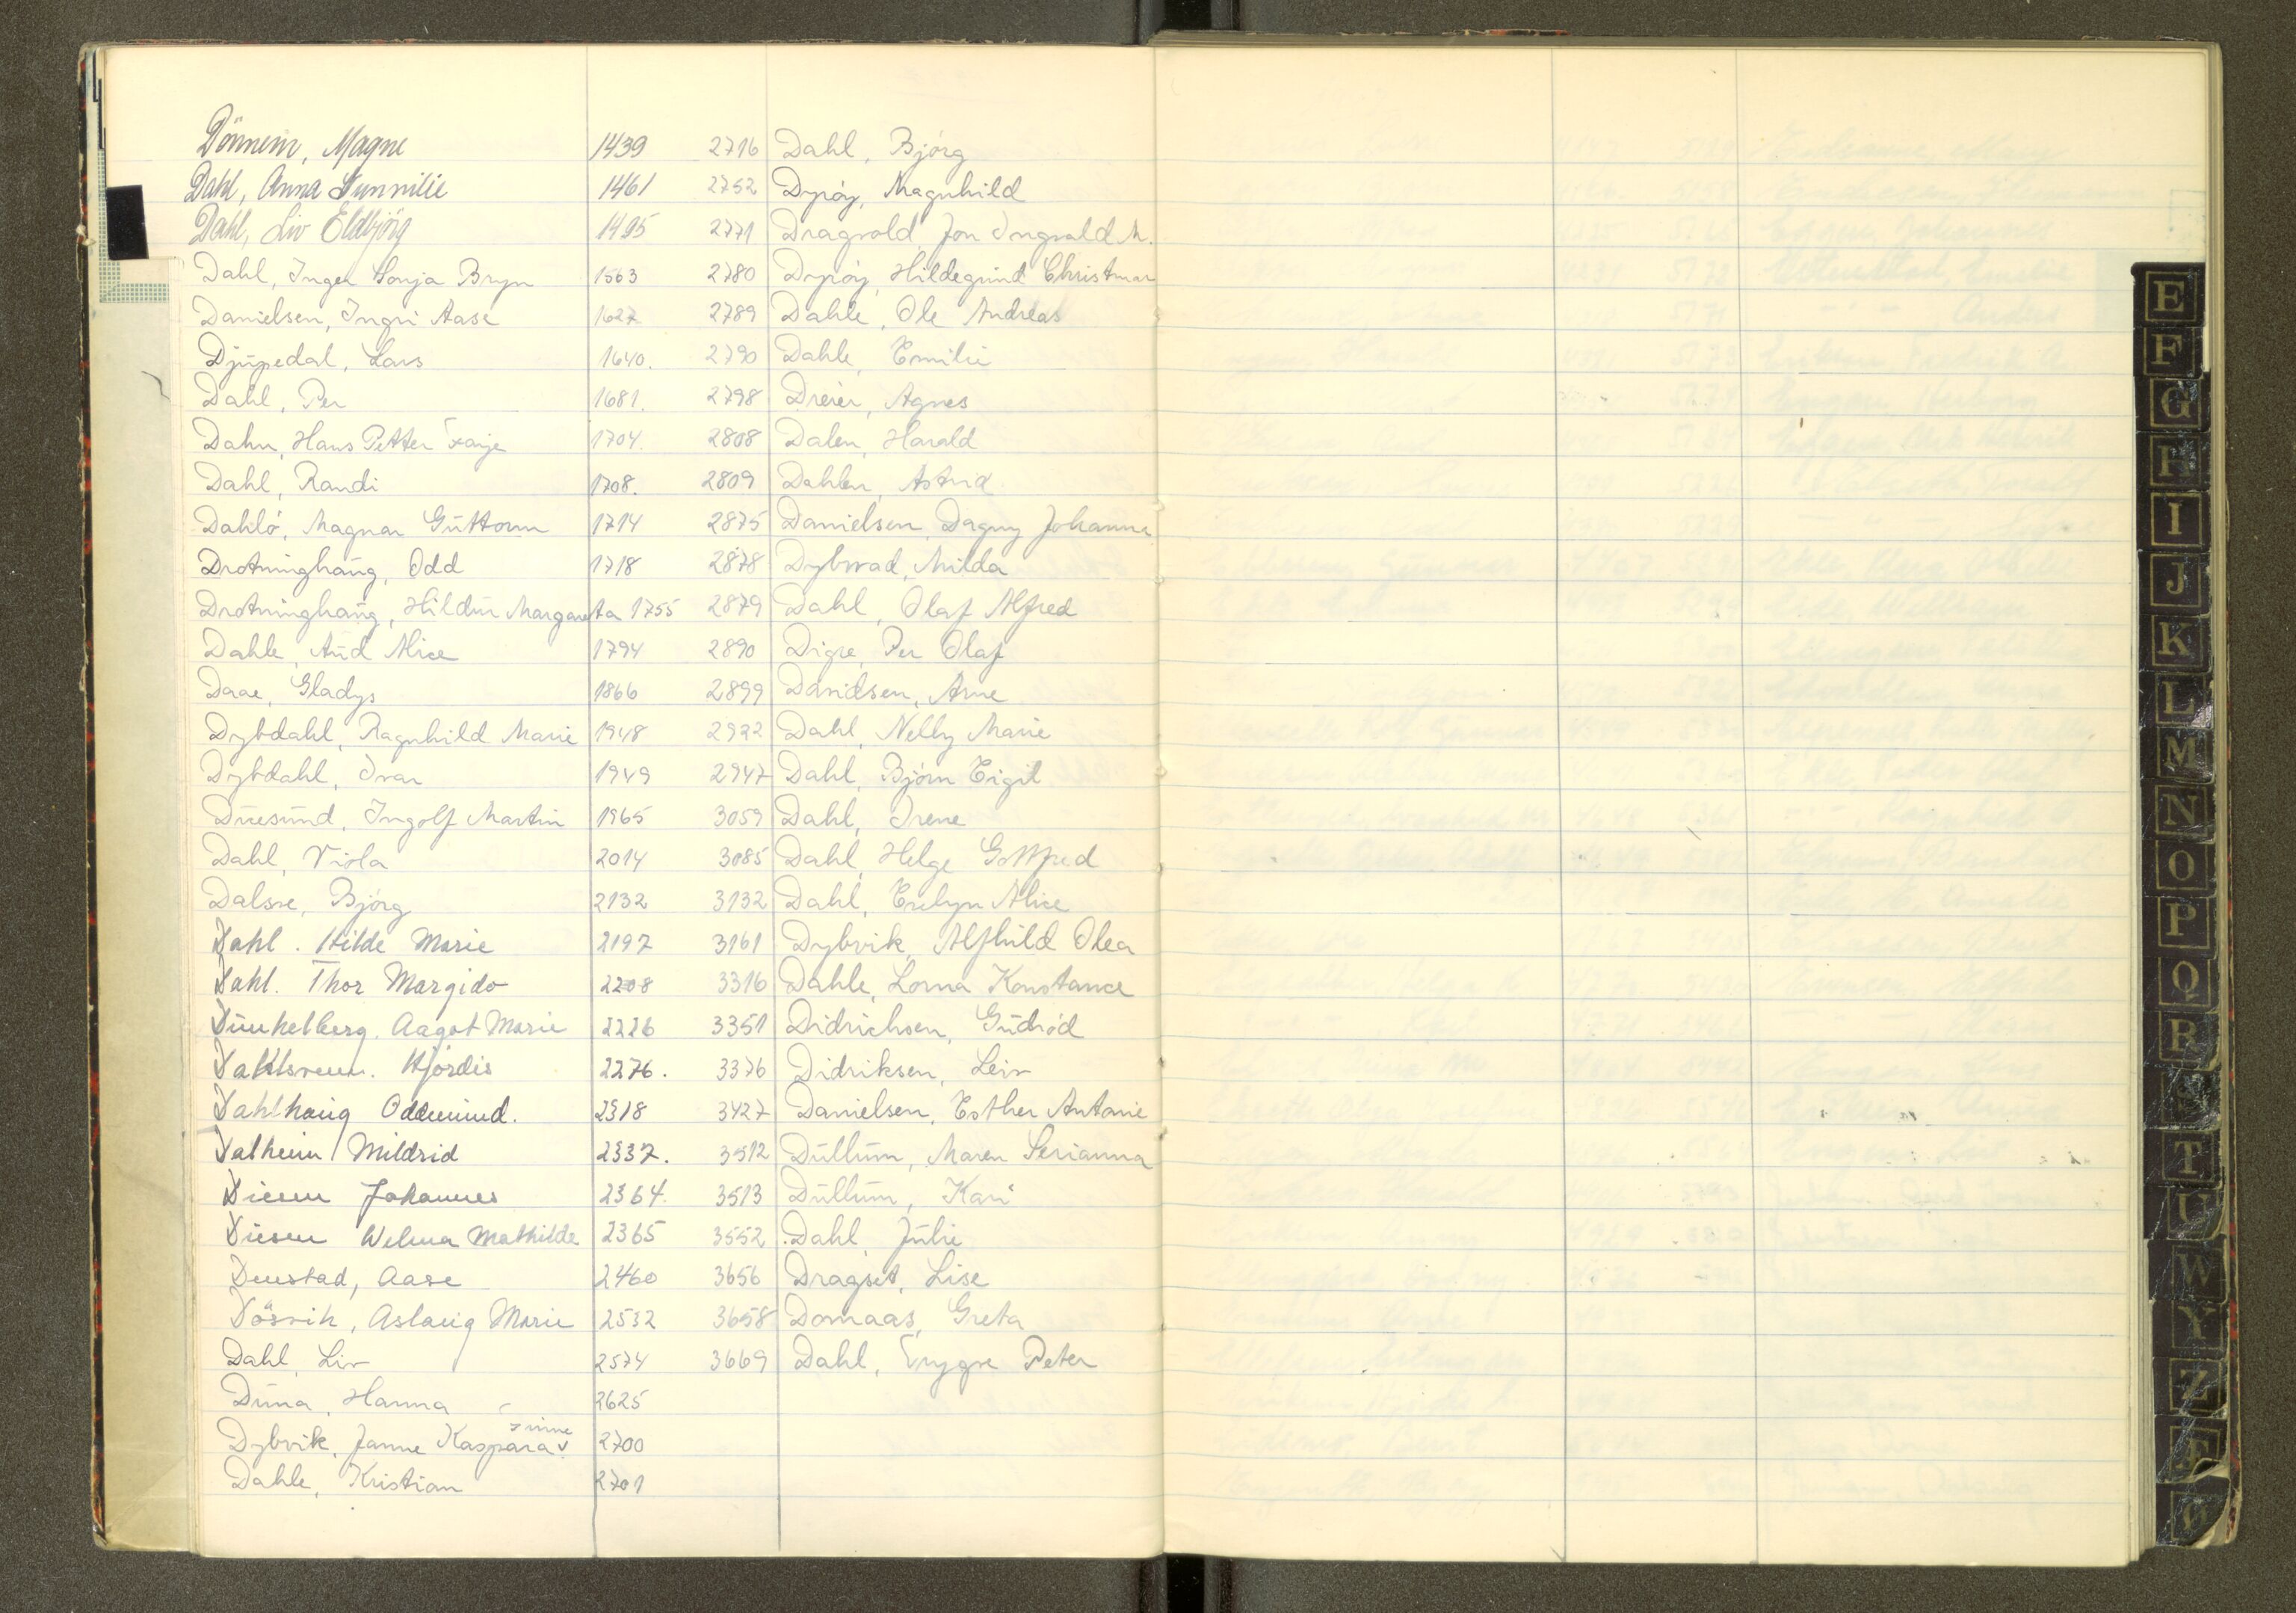 Dönnem, Magne 1439 2716 Dahl, Bjørg
Dahl, Anna Gunnilie 1461 2752 Dypøy, Magnhild
Dahl, Liv Eldbjörg 1495 2771 Dragvold, Jon Ingvald M.
Dahl, Inger Sonja Bryn 1563 2780 Dypøy, Hildegund Christmar
Danielsen, Ingri Aase 1627 2789 Dahle, Ole Andreas
Djupedal, Lars 1640. 2790 Dahle, Emilie
Dahl, Per 1681. 2798 Dreier, Agnes
Dahn, Hans Petter 1704. 2808 Dalen, Harald
Dahl, Randi 1708. 2809 Dahlen, Astrid
Dahlö, Magnar Guttorm 1714 2875 Danielsen, Dagny Johanna
Drotninghaug, Odd 1718 2878 Dybvad, Milda
Drotninghaug, Hildur Margareta 1755 2879 Dahl, Olaf Alfred
Dahle, Aud Alice 1794 2890 Digre, Per Olaf
Daae, Gladys 1866 2899 Davidsen, Arne
Dybdahl, Ragnhild Marie 1948 2932 Dahl, Nelly Marie
Dybdahl, Ivar 1949 2947 Dahl, Bjørn Eigil
Duesund, Ingolf Martin 1965 3059 Dahl, Irene
Dahl, Viola 2014 3085 Dahl, Helge Gottfred
Dalsve, Bjørg 2132 3132 Dahl, Evelyn Alice
Dahl. Hilde Marie 2197 3161 Dybvik, Alfhild Olea
Dahl. Thor Margido 2208 3316 Dahle, Lorna Konstance
Dunkelberg. Aagot Marie 2226 3351 Didrichsen, Gudrød
Dahlsveen. Hjördis 2276. 3376 Didriksen, Leiv
Dahlhaug Oddmund. 2318 3427 Danielsen, Esther Antonie
Dalheim Mildrid 2337. 3512 Dullum, Maren Serianna
Diesen Johannes 2364. 3513 Dullum, Kari
Diesen Welma Mathilde 2365 3552 Dahl, Julie
Deustad, Aase 2460 3656 Dragset, Lise
Dåsvik, Aslaug Marie 2532 3658 Domaas, Greta
Dahl, Liv 2574 3669 Dahl, Trygve Peter
Duna, Hanna 2625
Dybvik, Janne Kaspara 2700
Dahle, Kristian 2701
E
F
G
H
I
J
K
L
M
N
O
P
Q
R
S
T
U
W
Y
Z
Æ
Ø